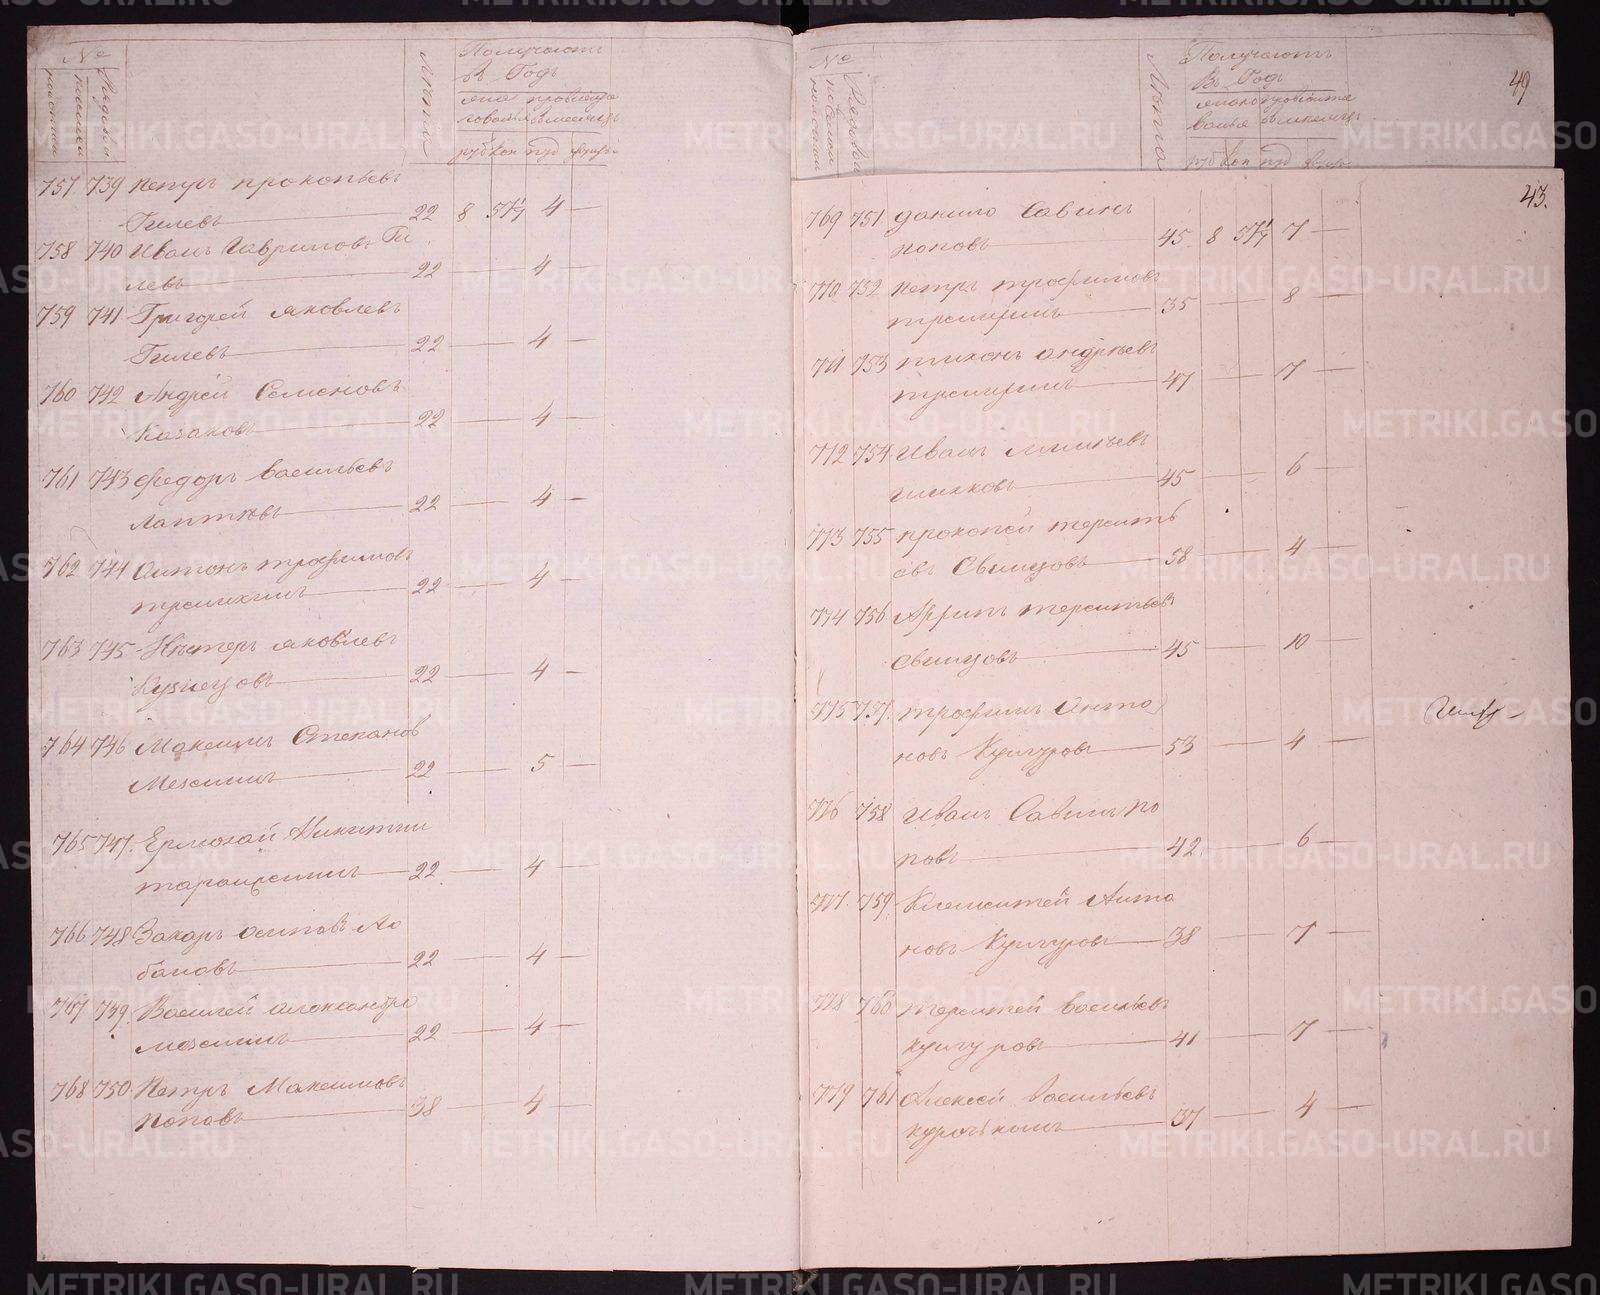 №
Лѣта
Получаютъ
въ Годъ
жалованья
провіанта
въ мѣсяцъ
руб коп пуд фунт
757 739 Петръ Прокопьевъ
Гилевъ 22 8 57 1/7 4 —
758 740 Иванъ Гавриловъ Ги
левъ 22 — 4 —
759 741 Григорей Яковлевъ
Гилевъ 22 — 4 —
760 742 Андрей Семеновъ
Казаковъ 22 — 4 —
761 743 Федоръ Васильевъ
Лаптевъ 22 — 4 —
762 744 Антонъ Трофимовъ
22 — 4 —
763 745 Нестеръ Яковлевъ
Кузнецовъ 22 — 4 —
764 746 Максимъ Степановъ
Мезенинъ 22 — 5 —
765 747 Ермолай Никитин
22 — 4 —
766 748 Захаръ Осиповъ Ло
бановъ 22 — 4 —
767 739 Василей Александро
Мезенинъ 22 — 4 —
768 750 Петръ Максимовъ
Поповъ 38 — 4 —
49
№
Лѣта
Получаютъ
Въ Годъ
жалованья
провіанта
въ мѣсяцъ
руб коп пуд фунт
43.
769 751 Данило Савинъ
Поповъ 45 8 57 1/7 7 —
770 752 Петръ Трофимовъ
35 — 8 —
771 753 Тихонъ Андреевъ
47 — 7 —
772 754 Иванъ
45 — 6 —
773 755 Прокопей Терентѣ
евъ Свинцовъ 58 — 4 —
774 756 Терентьевъ
Свинцовъ 45 — 10 —
775 757 Трофимъ Анто
новъ Кунгуровъ 53 — 4 —
776 758 Иванъ Савинъ По
повъ 42 — 6 —
777 759 Клементей Анто
новъ Кунгуровъ 38 — 7 —
778 760 Терентей Васильевъ
Кунгуровъ 41 — 7 —
779 761 Алексей Васильевъ
37 — 4 —